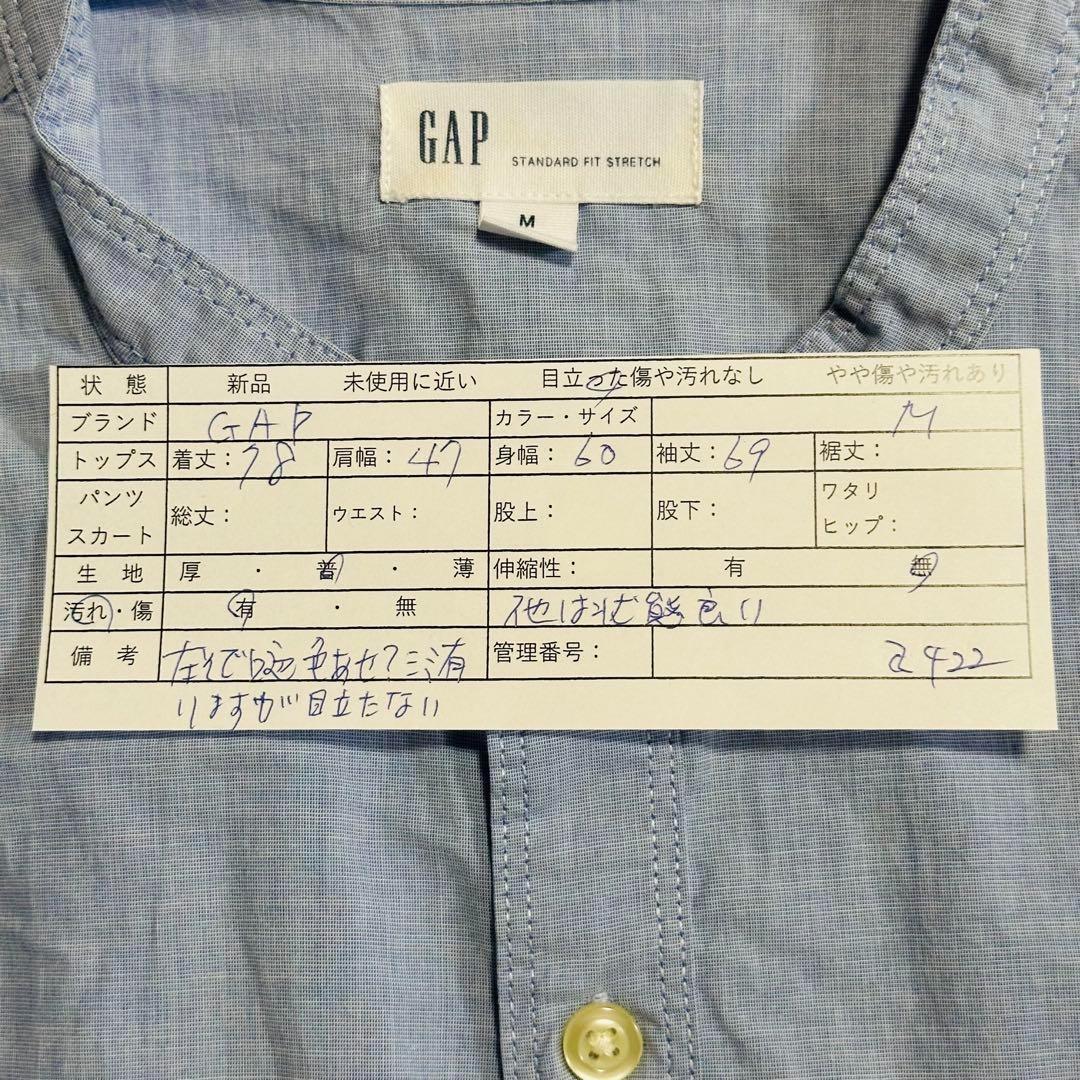 GAP
STANDARD FIT STRETCH
M
状 態 新品 未使用に近い 目立った傷や汚れなし やや傷や汚れあり
ブランド GAP カラー・サイズ M
トップス 着丈: 78 肩幅: 47 身幅: 60 袖丈: 69 裾丈:
パンツ スカート 総丈: ウエスト: 股上: 股下: ワタリ ヒップ:
生 地 厚 ・ 普 ・ 薄 伸縮性: 有 無
汚れ・傷 有 ・ 無 他は状態良い
備 考 左そで 色あせ? 有 管理番号: 422
りますが目立たない